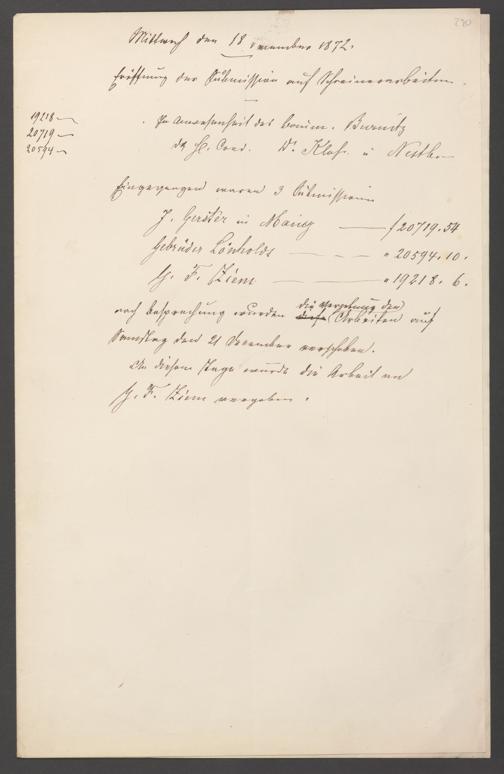 290
Mittwoch den 18 December 1872.
Eröffnung der Submission auf Schreinerarbeiten.
19218
20719
20594
In Anwesenheit des Baum. Burnitz
der H. Cord. Dr. Kloß. u
Eingegangen waren 3 Submissionen
J. Gerster in Mainz — f 20719.54
Gebrüder Lönholdt — — — " 20594.10.
H. F. Ziem — " 19218. 6.
nach Besprechung wurden die Vergebung der
diese Arbeiten auf
Samstag den 21 December verschoben.
An diesem Tage wurde die Arbeit an
H. F. Ziem vergeben.